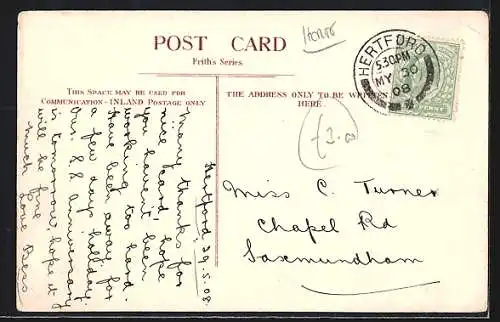 Horses
POST CARD
Frith's Series.
THIS SPACE MAY BE USED FOR
COMMUNICATION - INLAND POSTAGE ONLY
THE ADDRESS ONLY TO BE WRITTEN
HERE.
HERTFORD
5.30PM
MY 30
08
£3.00
Miss C. Turner
Chapel Rd
Saxmundham
Hertford 29.5.08.
Many thanks for
nice card, hope
you havent been
working too hard.
Have been away for
a few days holiday.
Our S.S anniversary
is tomorrow, hope it
will be fine
much love Bess